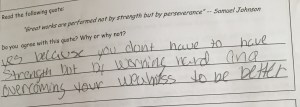 Read the following quote:
"Great works are performed not by strength but by perseverance" -- Samuel Johnson
Do you agree with this quote? Why or why not?
yes because you dont have to have
strength but by working hard and
overcoming your to be better